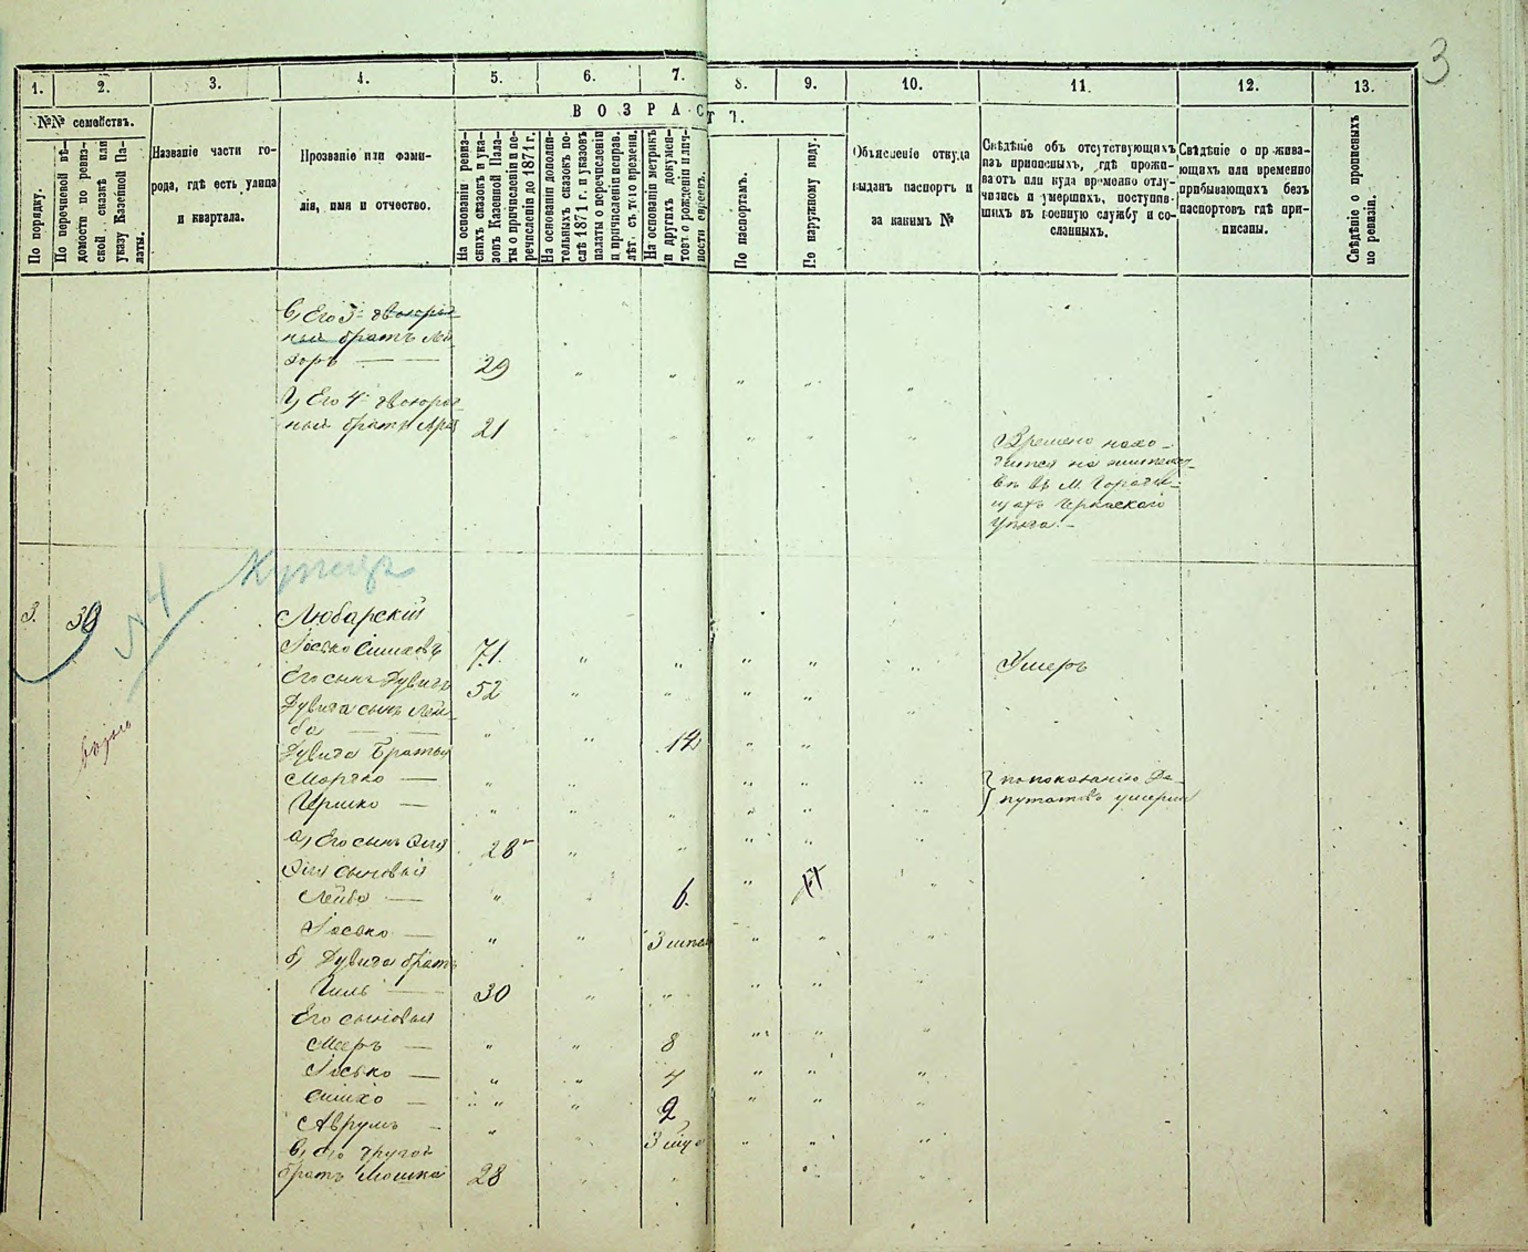 3
1. 2. 3. 4. 5. 6. 7. 8. 9. 10. 11. 12. 13.
№№ семействъ.
По порядку.
По перечневой вѣ-
домости по ревиз-
ской сказкѣ или
указу Казенной Па-
латы.
Названіе части го-
рода, гдѣ есть улица
и квартала.
Прозваніе или фами-
лія, имя и отчество.
ВОЗРАСТ Ъ.
На основаніи ревиз-
скихъ сказокъ и ука-
зовъ Казенной Пала-
ты о причисленіи и пе-
речисленіи до 1871 г.
На основаніи дополни-
тельныхъ сказокъ по-
слѣ 1871 г. и указовъ
палаты о перечисленіи
и причисленіи исправ.
лѣт. съ того времени.
На основаніи метрикъ
и другихъ докумен-
товъ о рожденіи и лич-
ности евреевъ.
По паспортамъ.
По наружному виду.
Объясненіе откуда
выданъ паспортъ и
за какимъ №
Свѣдѣніе объ отсутствующихъ
изъ приписныхъ, гдѣ прожи-
ваютъ или куда временно отлу-
чились и умершихъ, поступив-
шихъ въ военную службу и со-
сланныхъ.
Свѣдѣніе о прожива-
ющихъ или временно
прибывающихъ безъ
паспортовъ гдѣ при-
писаны.
Свѣдѣніе о прописныхъ
по ревизіи.
в) Его 3й двоюрод-
ный братъ Лей-
зоръ — — 29
г) Его 4й двоюрод-
ный братъ 21
Времено нахо-
дится на
въ М. Городи-
щахъ Черкаскаго
уѣзда. –
3. 30
Любарскій
Іосько Симховъ 71. Умеръ
Его сынъ Дувидъ 52
Дувида сынъ Лей-
ба — — 14
Дувида братья
Мортко —
Иршко —
по показанію Де-
путатовъ умерли
а) Его сынъ Эля 28
Эля сыновья
Лейба — 6.
Іосько — 3
б) Дувида братъ
Гиль — 30
Его сыновья
Мееръ — 8
Іосько — 4
Симхо — 2
Аврумъ – 3
в) его другой
братъ Мошко 28